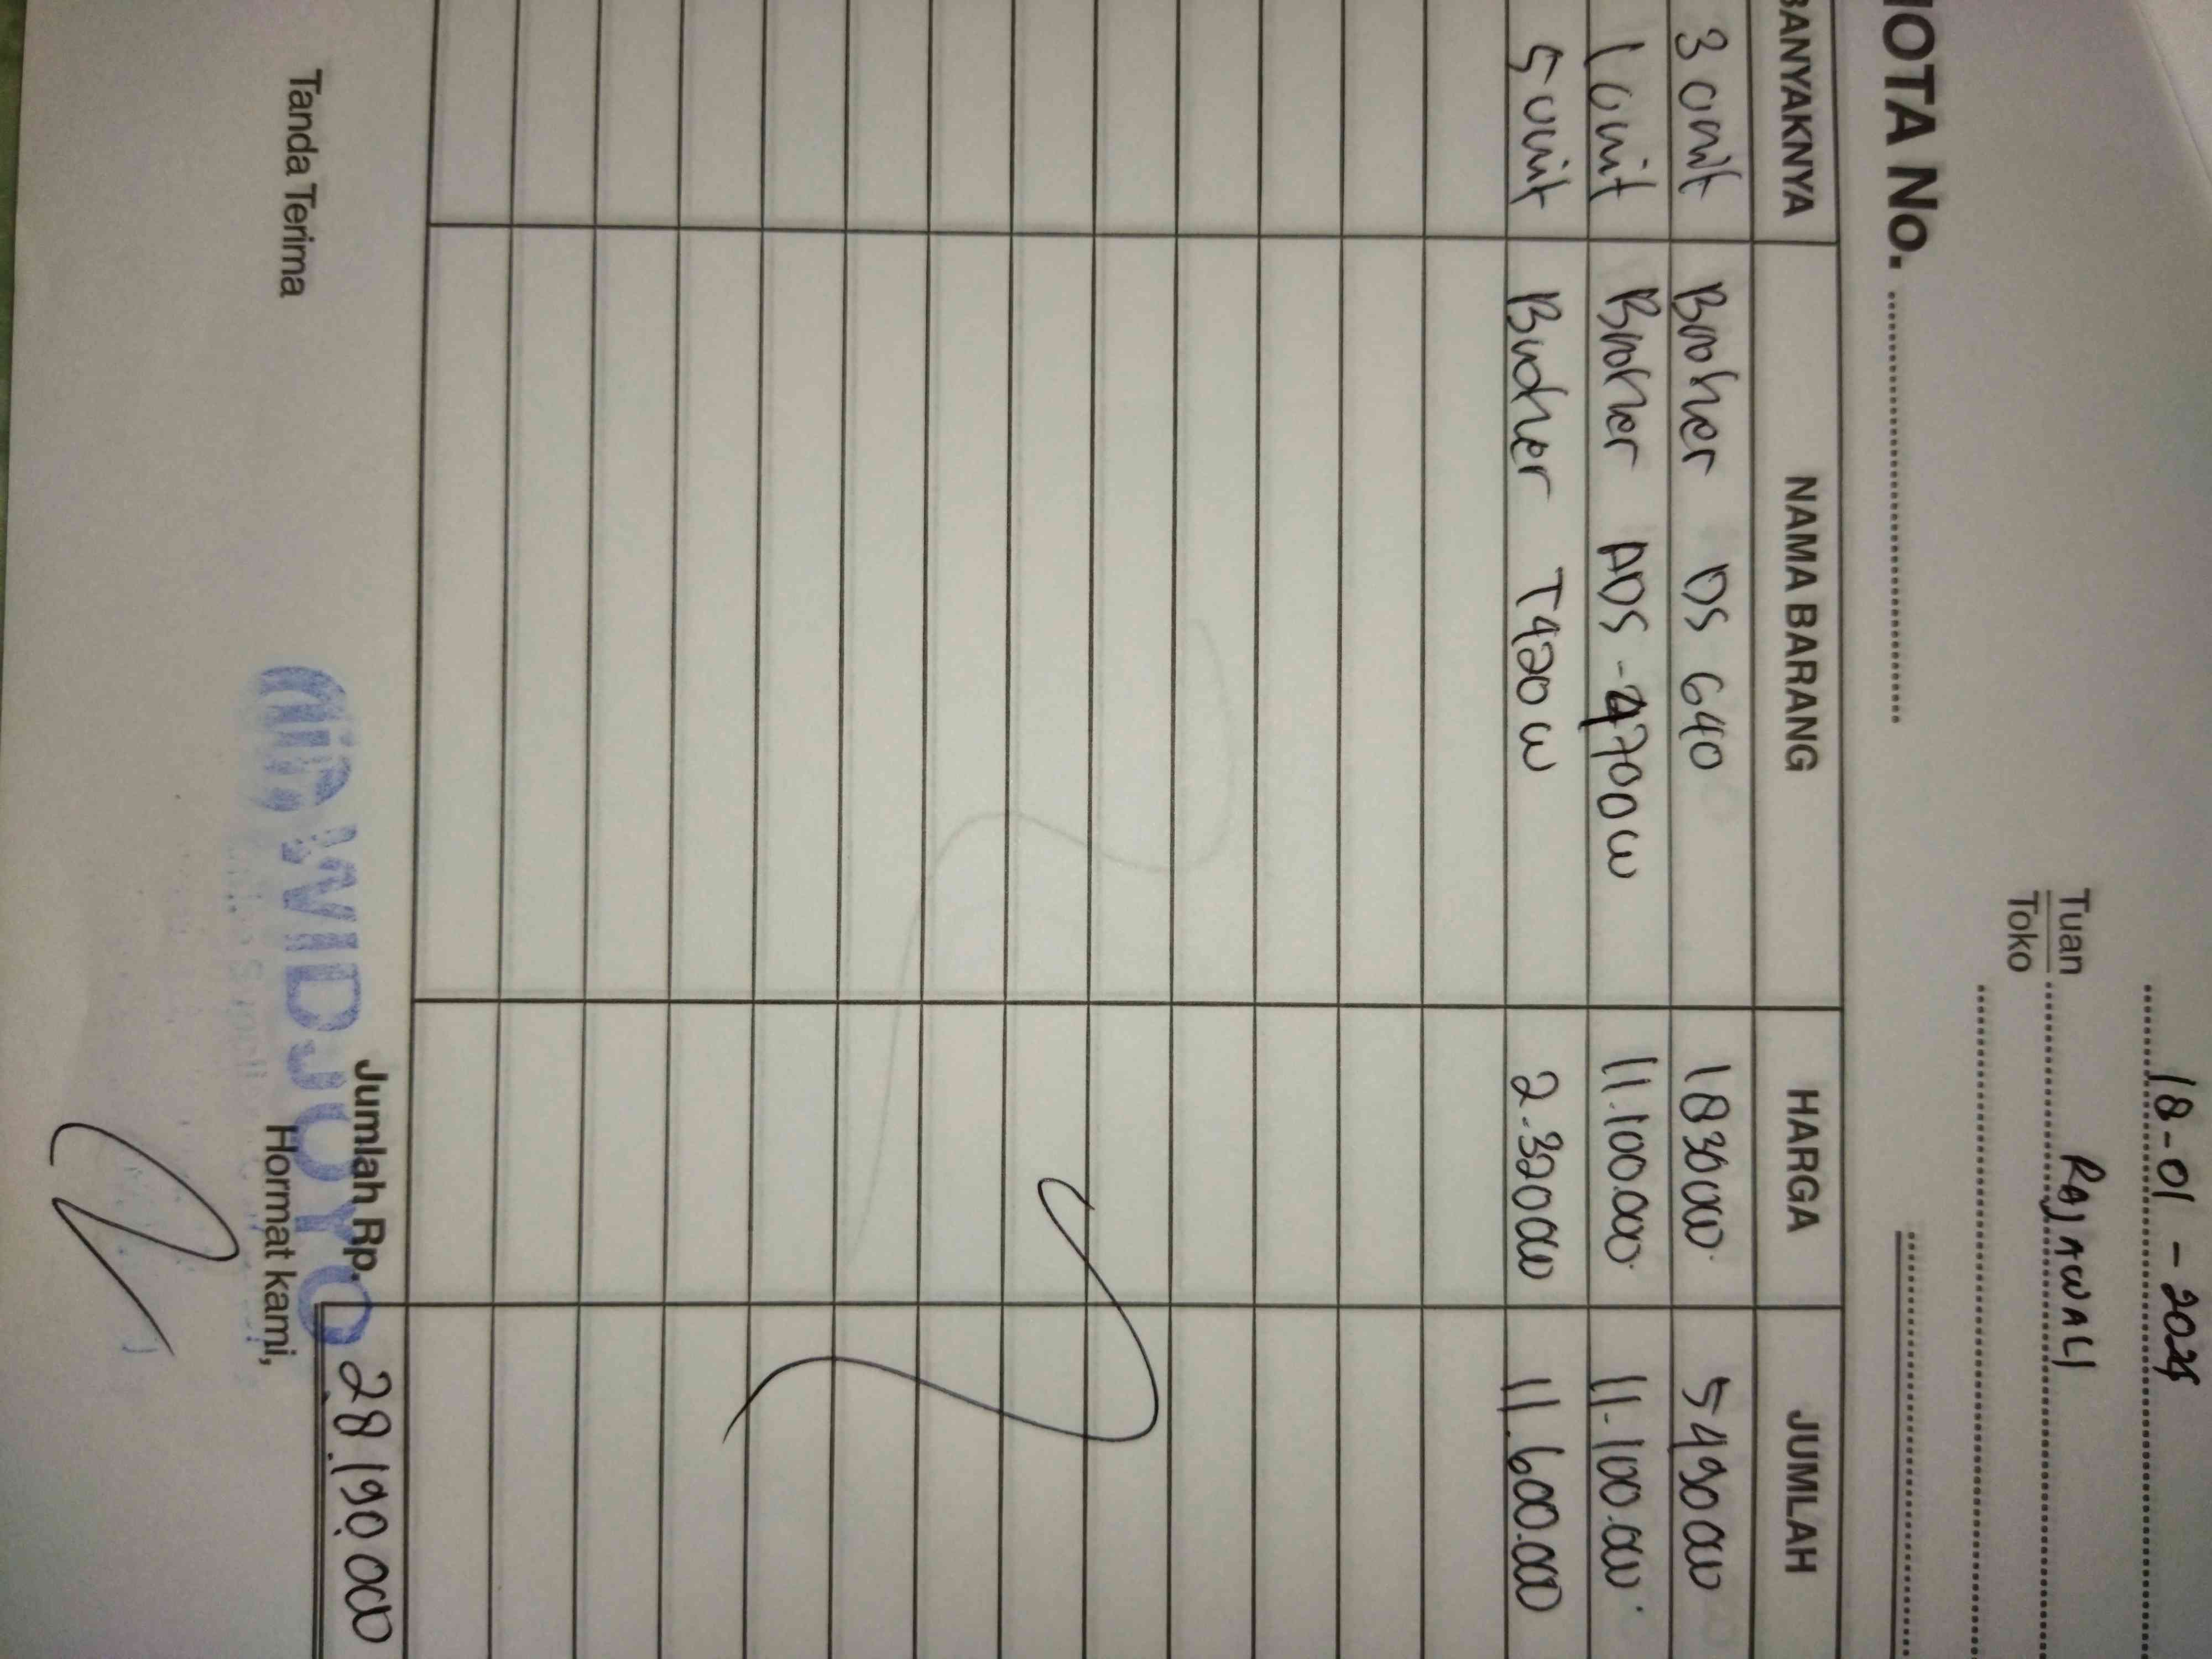 18-01-2025
Tuan RAJAWALI
Toko
NOTA No.
BANYAKNYA NAMA BARANG HARGA JUMLAH
3 unit Brother DS 640 1830000 5490000
1 unit Brother ADS-4700W 11.100.000 11.100.000
5 unit Brother T420W 2.320000 11.600.000
Jumlah Rp. 28.190.000
Tanda Terima Hormat kami,
WIDJOYO